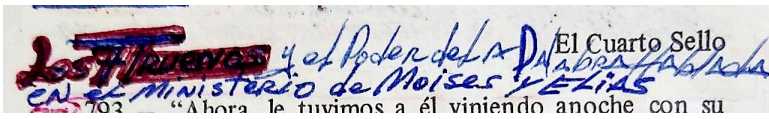 El Cuarto Sello
Los 7 Truenos y el Poder de LA Palabra Hablada
EN EL MINISTERIO de Moises y ELIAS
793 — “Ahora, le tuvimos a él viniendo anoche con su